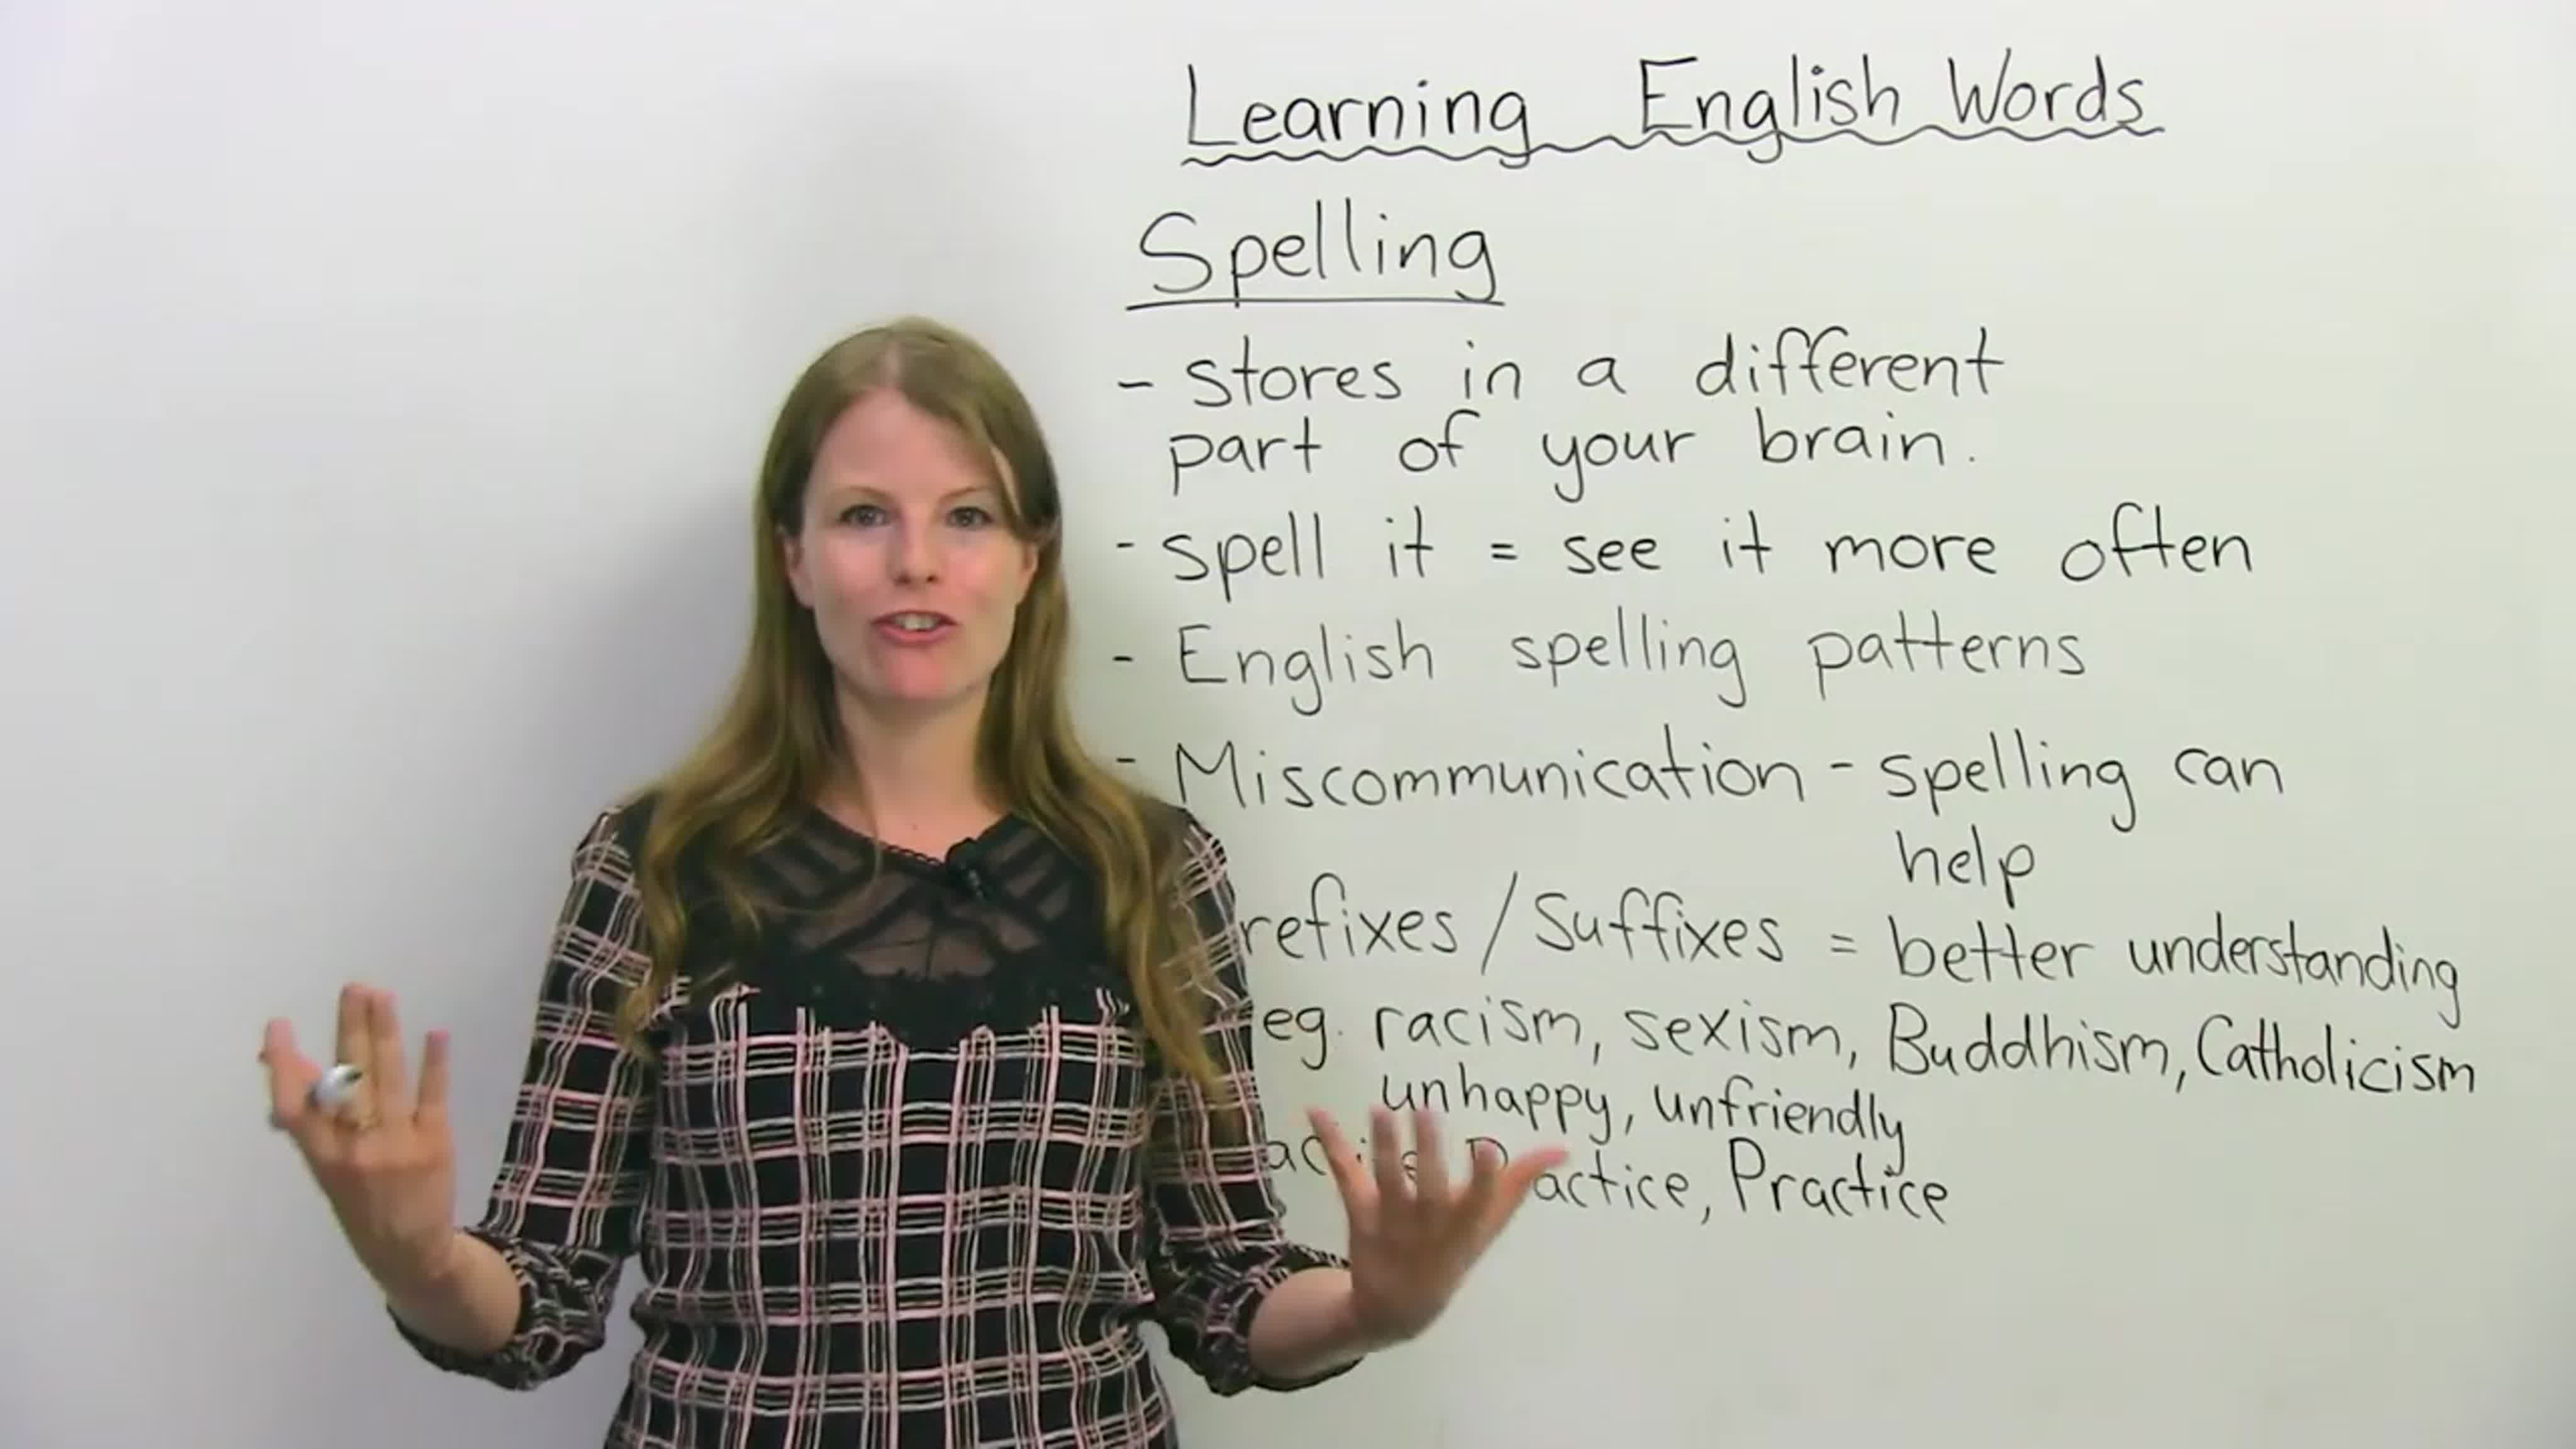 Learning English Words
Spelling
- stores in a different
part of your brain.
- spell it = see it more often
- English spelling patterns
- Miscommunication - spelling can
help
refixes / Suffixes = better understanding
eg. racism, sexism, Buddhism, Catholicism
unhappy, unfriendly
actice, Practice